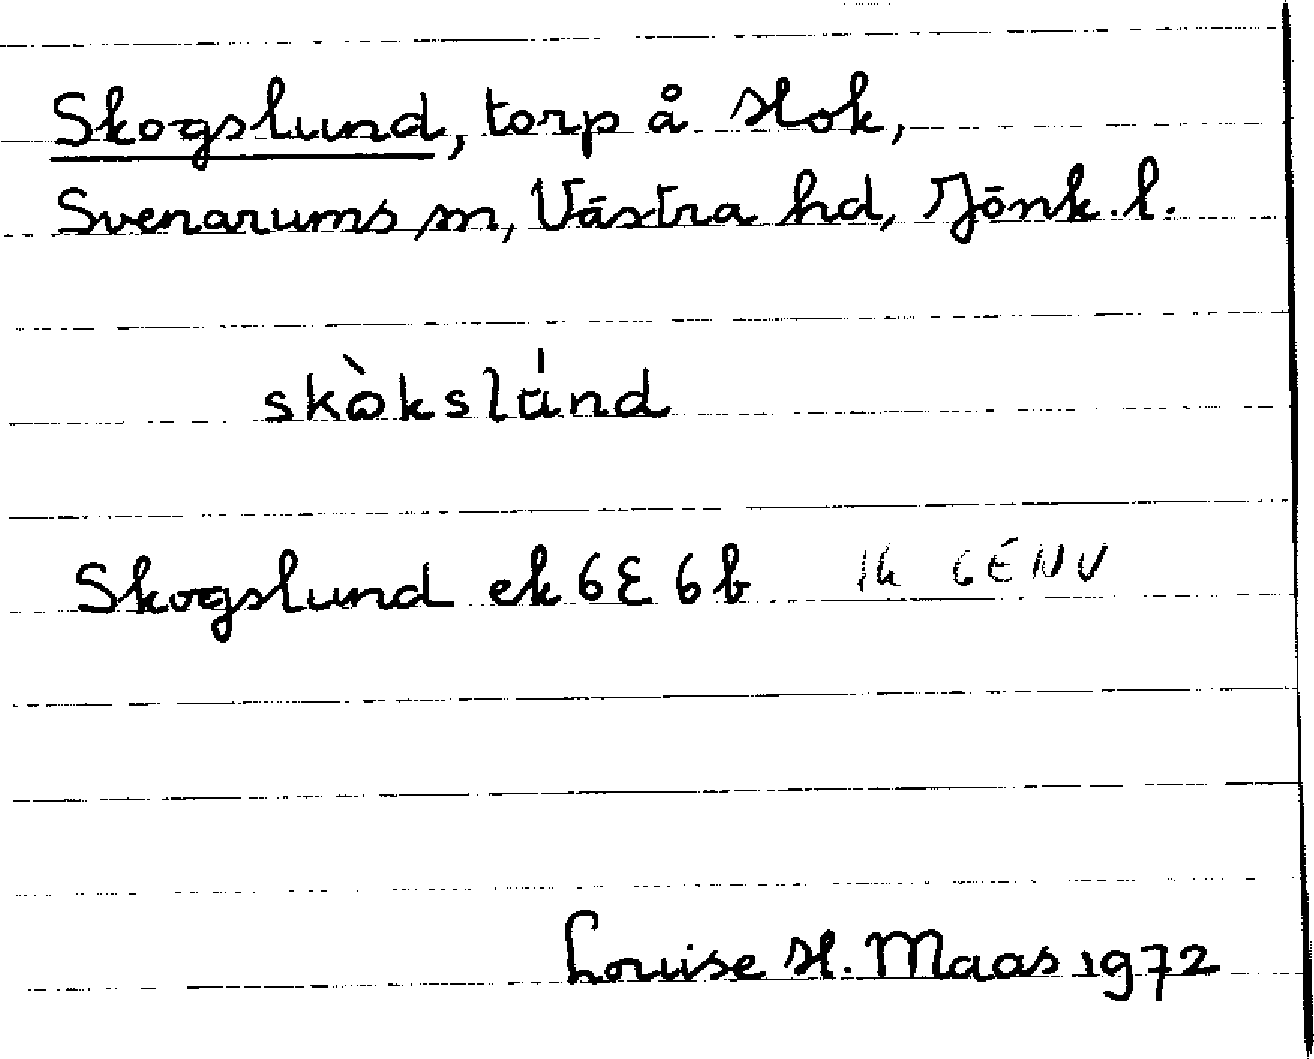 Skogslund, torp å Hok,
Svenarums sn, Västra hd, Jönk. l.
skòkslúnd
Skogslund ek 6E 6b 1k 6E NV
Louise H. Maas 1972